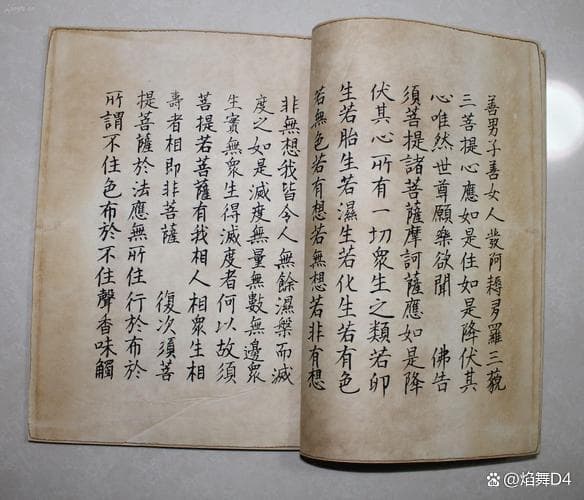 善男子善女人發阿耨多羅三藐
三菩提心應如是住如是降伏其
心唯然世尊願樂欲聞　佛告
須菩提諸菩薩摩訶薩應如是降
伏其心所有一切衆生之類若卵
生若胎生若濕生若化生若有色
若無色若有想若無想若非有想
非無想我皆令人無餘濕槃而滅
度之如是滅度無量無數無邊衆
生實無衆生得滅度者何以故須
菩提若菩薩有我相人相衆生相
壽者相即非菩薩　復次須菩
提菩薩於法應無所住行於布於
所謂不住色布於不住聲香味觸
@焰舞D4